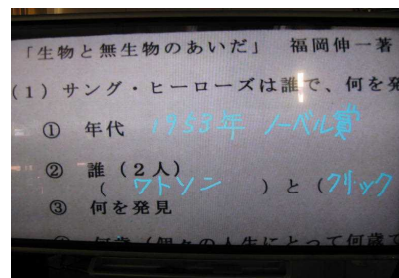 「生物と無生物のあいだ」 福岡伸一著
(1) サング・ヒーローズは誰で、何を発
① 年代 1953年 ノーベル賞
② 誰(2人)
( ワトソン )と(クリック
③ 何を発見
④ 何歳(個々の人生にとって何歳で